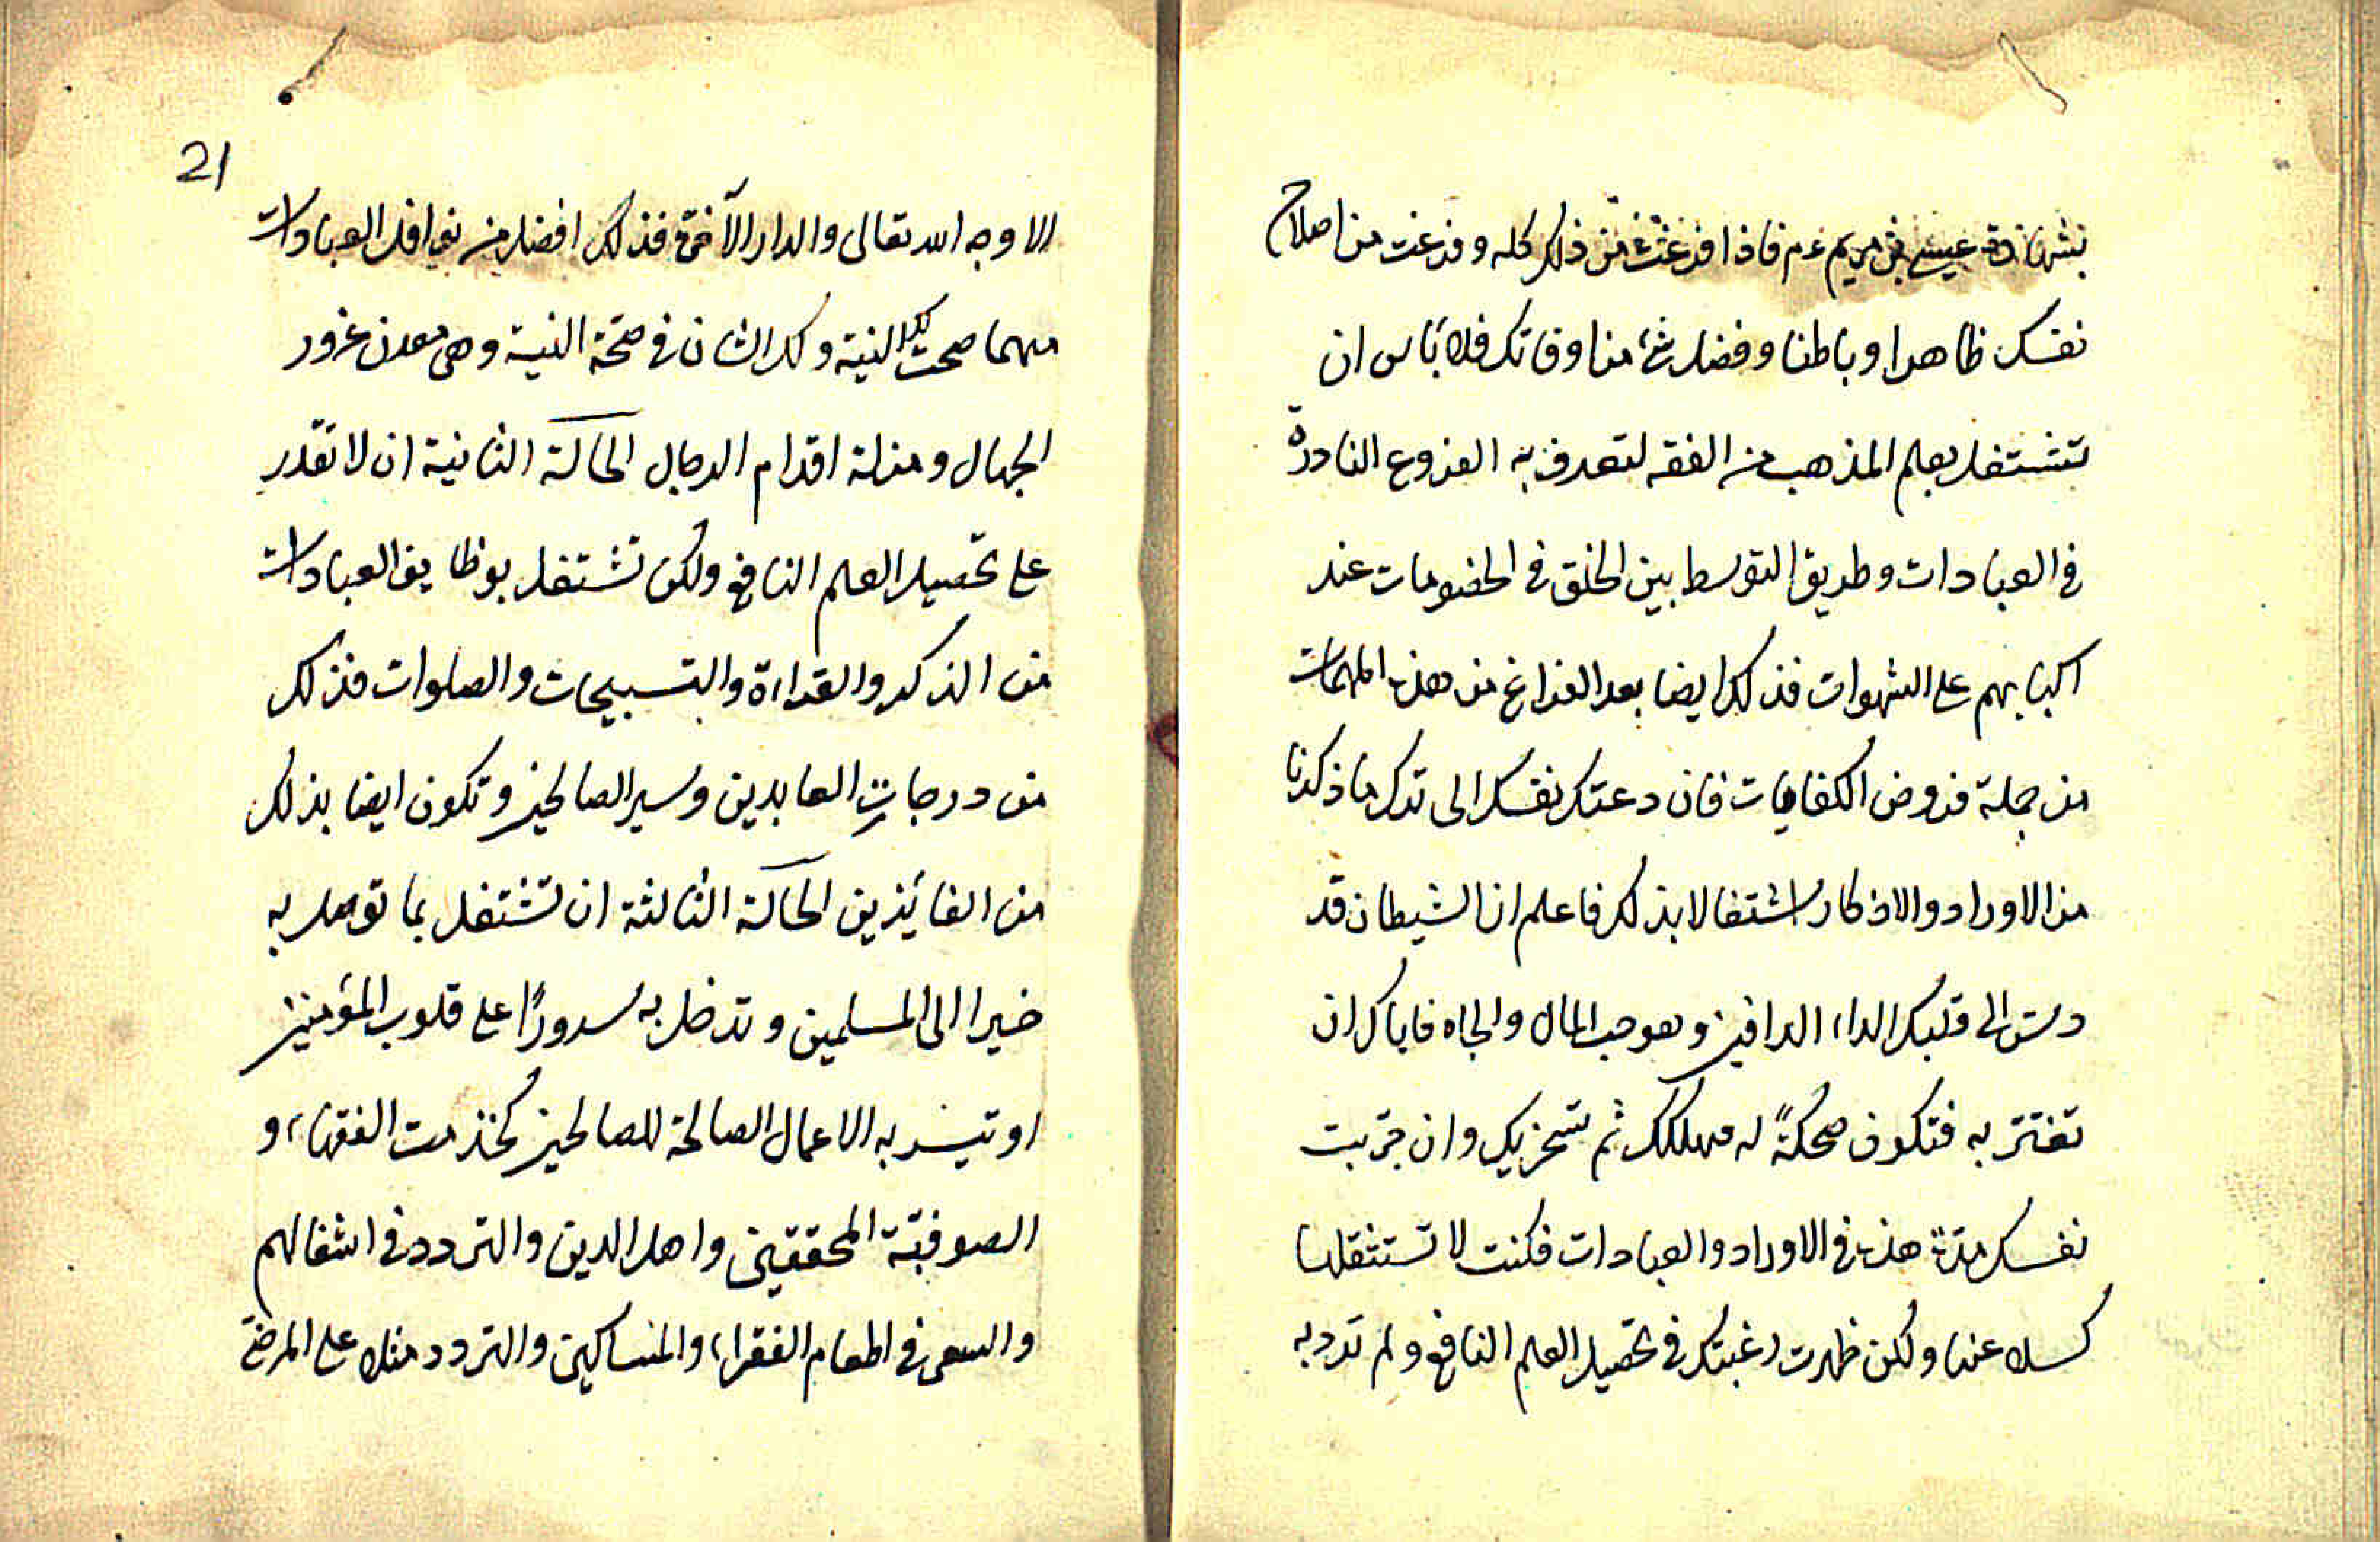 بشهادة عيسى بن مريم عم فاذا فرغت من ذلك كله وفرغت من اصلاح
نفسك ظاهرا وباطنا وفضل شئ من اوقاتك فلا بأس ان
تشتغل بعلم المذهب من الفقه لتعرف به الفروع النادرة
فى العبادات وطريق التوسط بين الخلق فى الخصومات عند
اكبابهم على الشهوات فذلك ايضا بعد الفراغ من هذه المهمات
من جملة فروض الكفايات فان دعتك نفسك الى ترك ما ذكرنا
من الاوراد والاذكار اشتغالا بذلك فاعلم ان الشيطان قد
دس الى قلبك الداء الدافين وهو حب المال والجاه فاياك ان
تغتر به فتكون ضحكة له مهلكك ثم تسخر بك وان جربت
نفسك مدة هذه فى الاوراد والعبادات فكنت لا تستثقلها
كسلا عنها ولكن ظهرت رغبتك فى تحصيل العلم النافع ولم ترد به
21
الا وجه الله تعالى والدار الآخرة فذلك افضل من نوافل العبادات
مهما صحت لك النية وكل الشان فى صحة النية وهى معدن غرور
الجهال ومزلة اقدام الرجال الحالة الثانية ان لا تقدر
على تحصيل العلم النافع ولكن تشتغل بوظايف العبادات
من الذكر والقراءة والتسبيحات والصلوات فذلك
من درجات العابدين وسير الصالحين وتكون ايضا بذلك
من الفائيزين الحالة الثالثة ان تشتغل بما توصل به
خيرا الى المسلمين وتدخل به سرورًا على قلوب المؤمنين
او تيسر به الاعمال الصالحة للصالحين كخدمت الفقهاء و
الصوفيّة المحققين واهل الدين والتردد فى اشغالهم
والسعى فى اطعام الفقراء والمساكين والتردد مثلا على المرضى